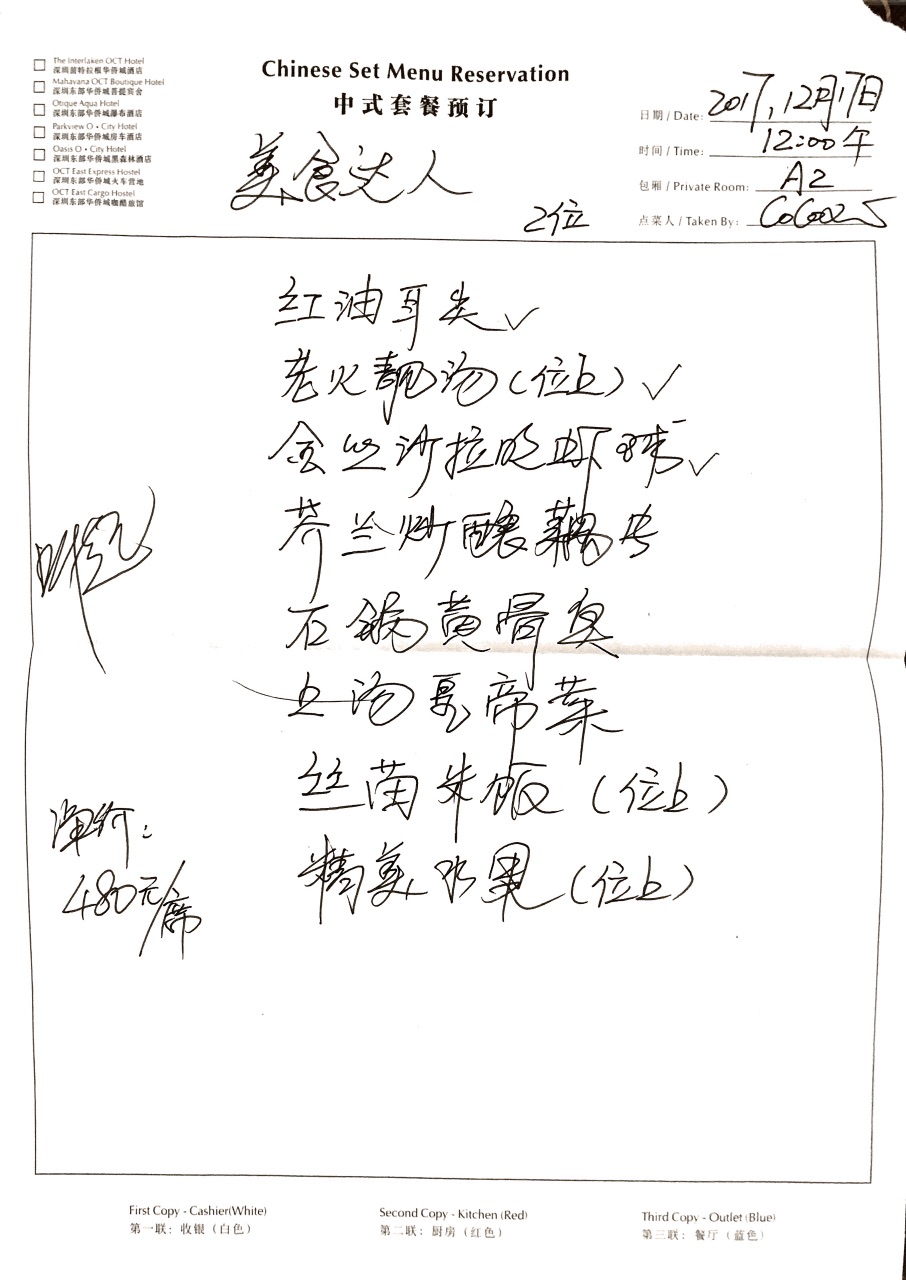 The Interlaken OCT Hotel
深圳茵特拉根华侨城酒店
Mahavana OCT Boutique Hotel
深圳东部华侨城菩提宾舍
Otique Aqua Hotel
深圳东部华侨城瀑布酒店
Parkview O • City Hotel
深圳东部华侨城房车酒店
Oasis O • City Hotel
深圳东部华侨城黑森林酒店
OCT East Express Hostel
深圳东部华侨城火车营地
OCT East Cargo Hostel
深圳东部华侨城咖酷旅馆
Chinese Set Menu Reservation
中式套餐预订
美食达人
2位
日期 / Date: 2017, 12月17日
时间 / Time: 12:00午
包厢 / Private Room: A2
点菜人 / Taken By: CoCo025
红油耳尖 ✓
老火靓汤(位上) ✓
金丝沙拉明虾球 ✓
芥兰炒酿藕片
石锅黄骨鱼
上汤夏帝菜
丝苗米饭(位上)
精美水果(位上)
净价:
480元/席
First Copy - Cashier(White)
第一联: 收银 (白色)
Second Copy - Kitchen (Red)
第二联: 厨房 (红色)
Third Copy - Outlet (Blue)
第三联: 餐厅 (蓝色)